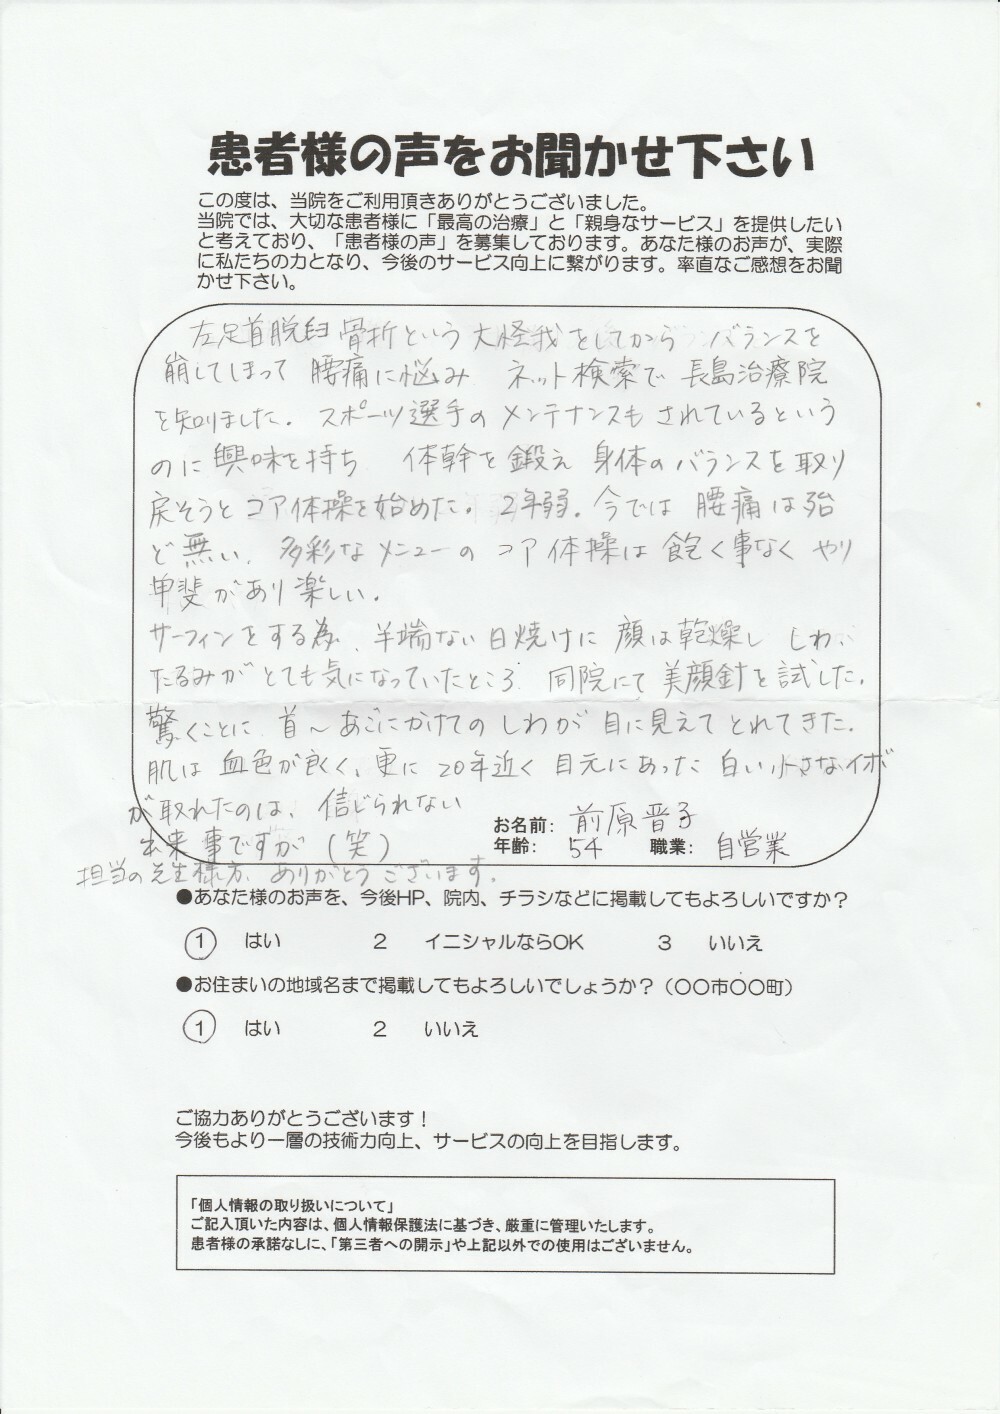 患者様の声をお聞かせ下さい
この度は、当院をご利用頂きありがとうございました。
当院では、大切な患者様に「最高の治療」と「親身なサービス」を提供したい
と考えており、「患者様の声」を募集しております。あなた様のお声が、実際
に私たちの力となり、今後のサービス向上に繋がります。率直なご感想をお聞
かせ下さい。
左足首脱臼骨折という大怪我をしてから バランスを
崩してしまって 腰痛に悩み ネット検索で 長島治療院
を知りました。スポーツ選手のメンテナンスもされているという
のに興味を持ち 体幹を鍛え 身体のバランスを取り
戻そうとコア体操を始めた。2年弱。今では 腰痛は殆
ど無い、多彩なメニューの コア体操は 飽く事なく やり
甲斐があり楽しい。
サーフィンをする為、半端ない日焼けに 顔は乾燥し しわ、
たるみがとても気になっていたところ 同院にて美顔針を試した。
驚くことに 首〜あごにかけてのしわが 目に見えてとれてきた。
肌は血色が良く、更に20年近く目元にあった白い小さなイボ
が取れたのは、信じられない
出来事ですが(笑)
担当の先生様方、ありがとうございます。
お名前: 前原晋子
年齢: 54 職業: 自営業
●あなた様のお声を、今後HP、院内、チラシなどに掲載してもよろしいですか?
1 はい 2 イニシャルならOK 3 いいえ
●お住まいの地域名まで掲載してもよろしいでしょうか?(〇〇市〇〇町)
1 はい 2 いいえ
ご協力ありがとうございます!
今後もより一層の技術力向上、サービスの向上を目指します。
「個人情報の取り扱いについて」
ご記入頂いた内容は、個人情報保護法に基づき、厳重に管理いたします。
患者様の承諾なしに、「第三者への開示」や上記以外での使用はございません。